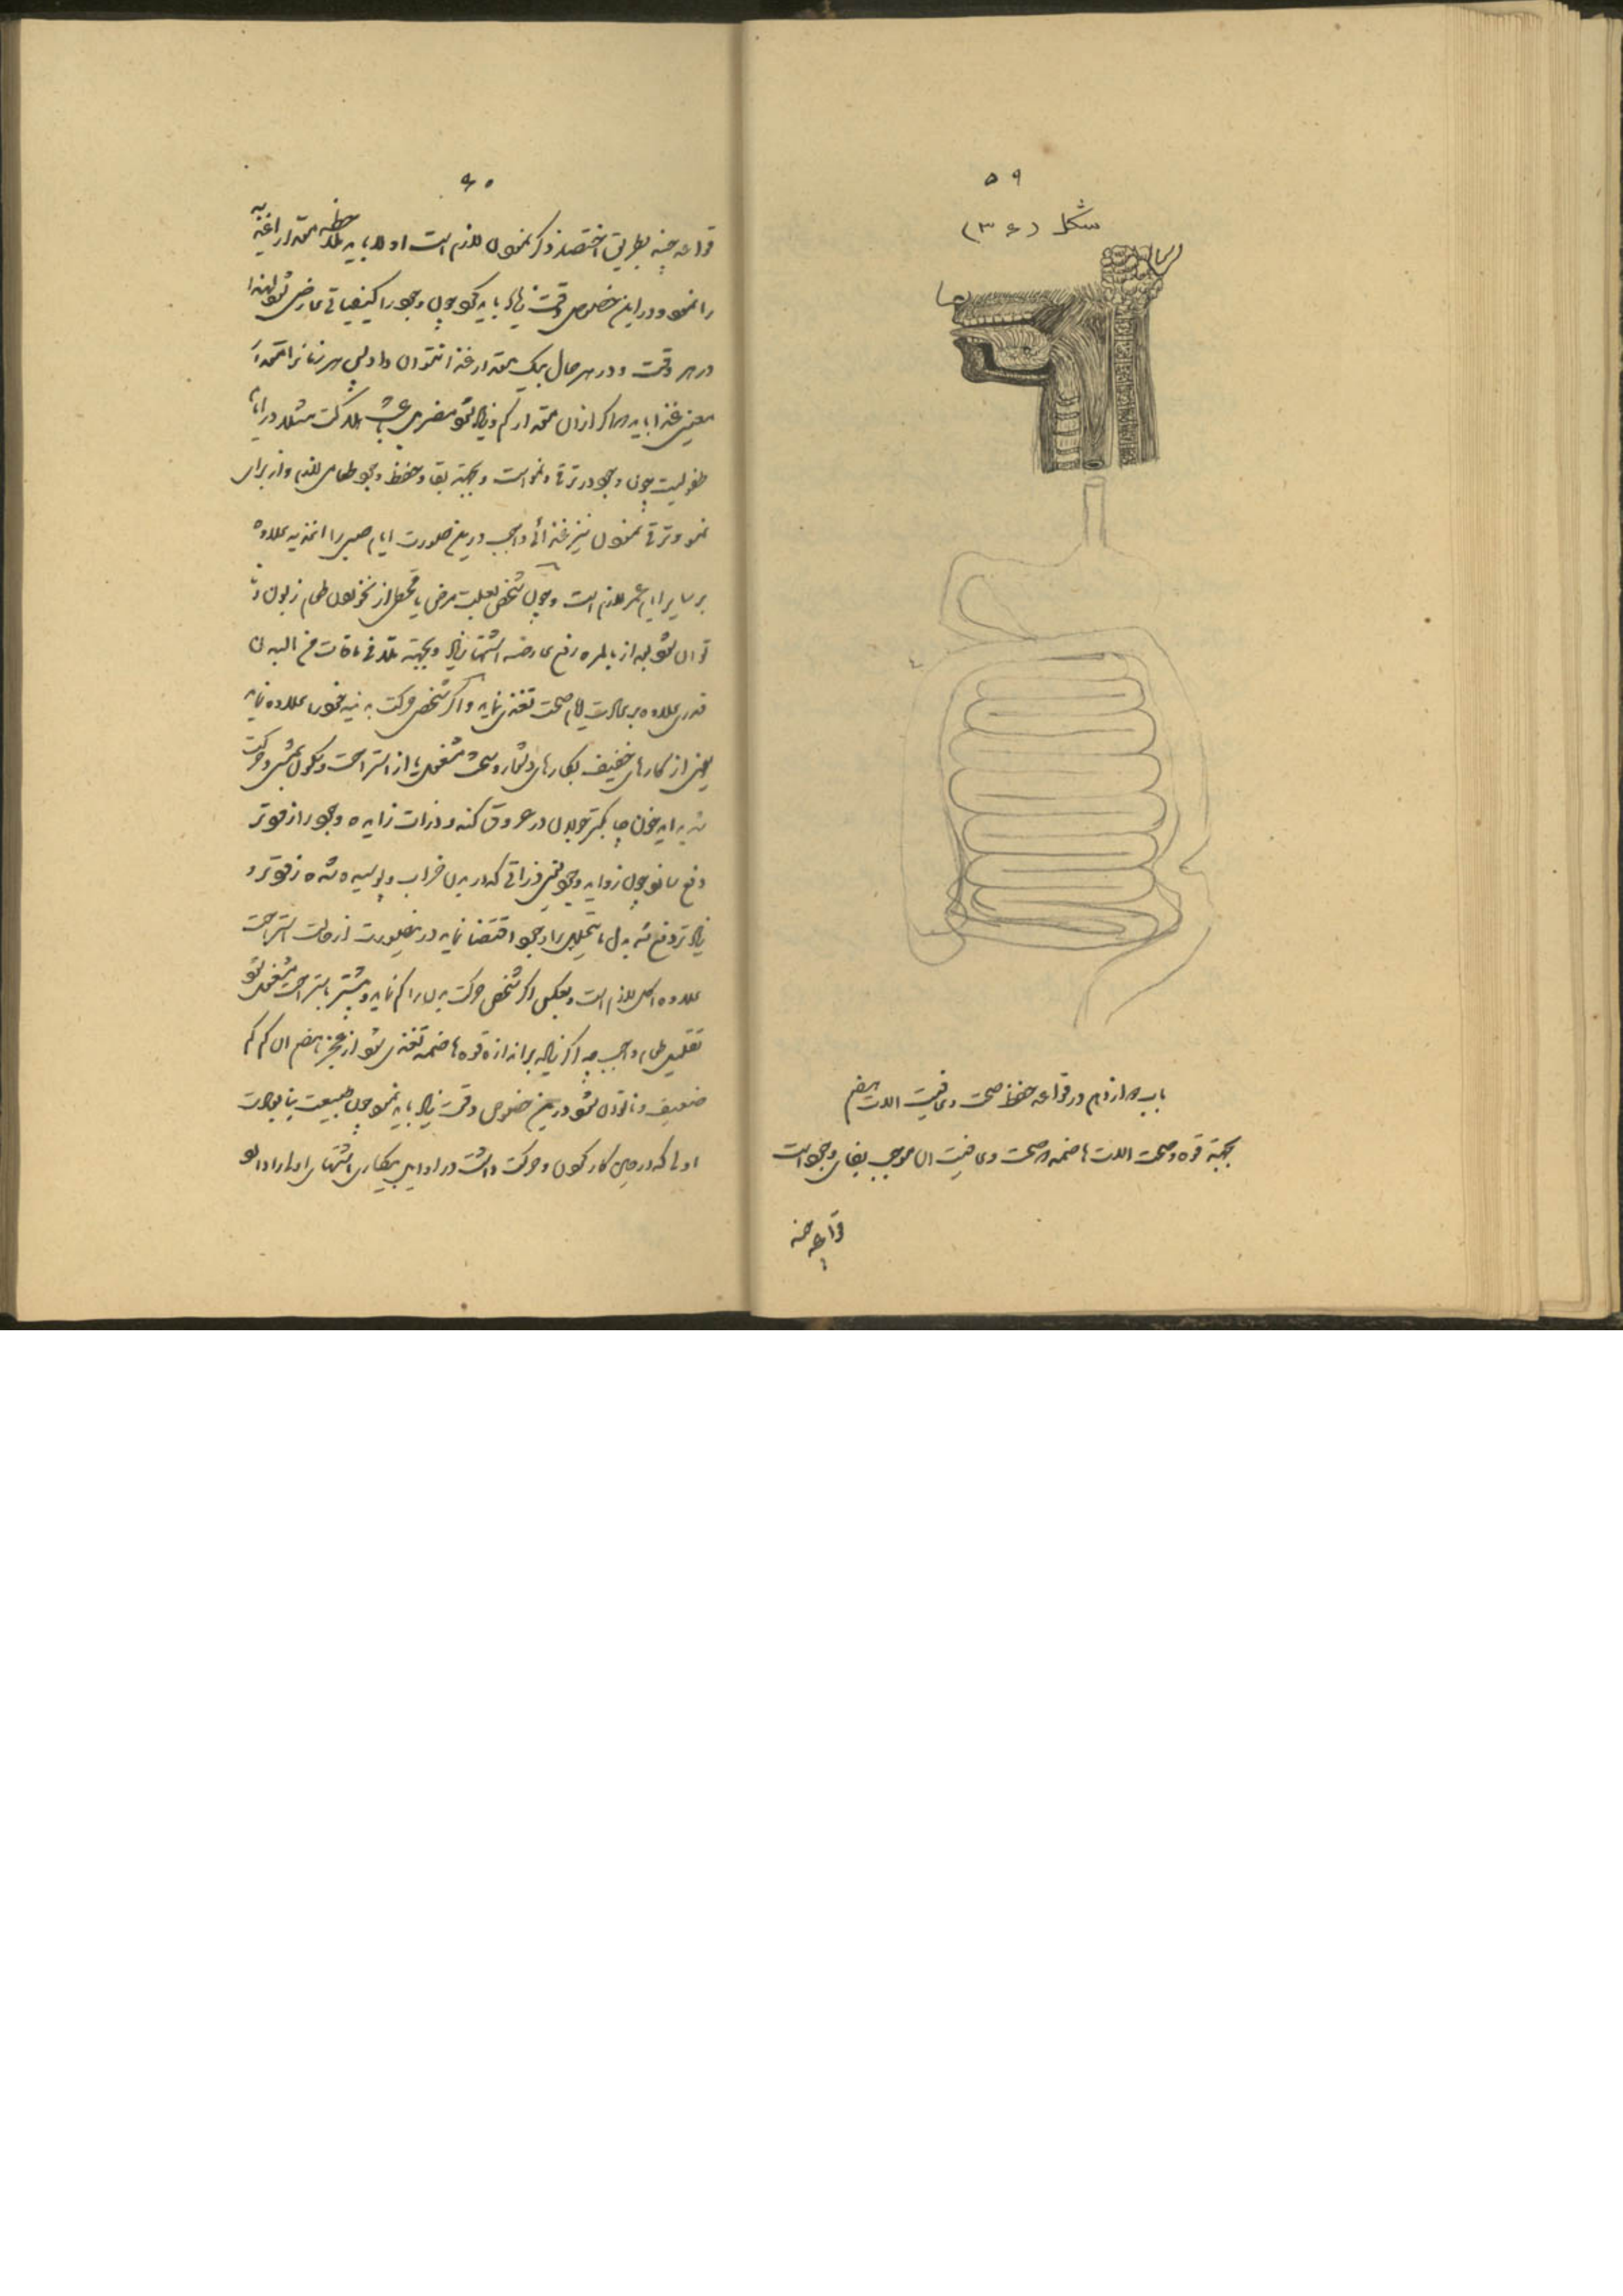 ۵۹
شکل (۳۶)
باب دوازدهم در قواعد حفظ صحت و عافیت الات هضم
بجهة قوه و صحت الات هاضمه که صحت و عافیت ان موجب بقای وجود است
قواعد چند
۶۰
قواعد چند بطریق اختصار ذکر نمودن لازم است اولا باید ملاحظه مقدار اغذیه
را نمود و در این خصوص دقت زیاد باید کرد چون وجود را کیفیاتی عارض شود لهذا
در هر وقت و در هر حال بیک مقدار غذا نتوان داد ولی هر زمانرا مقدار
معین غذا باید که اگر از ان مقدار کم و زیاد شود مضر و باعث هلاکت مثلا در ایام
طفولیت چون وجود در ترقی و نمو است و بجهة بقا و حفظ وجود طعامی لازم و از برای
نمو و ترقی نمودن نیز غذائی واجب در این صورت ایام صبی را اغذیه علاوه
بر سایر ایام عمر لازم است و چون شخص بعلت مرض یا قحطی از نخوردن طعام زبون و نا
توان شود بعد از بالمره رفع عارضه اشتها زیاد و بجهة تلافی مافات من البدن
قدری علاوه بر عادت ایام صحت تغذی نماید و اگر شخص حرکت بدنیه خود را علاوه نماید
یعنی از کارهای خفیف بکارهای دشوار و سخت مشغول یا از استراحت و سکون بمشی و حرکت
شدید اید خون چابکتر جولان در عروق کند و ذرات زایده وجود را زودتر
دفع سازد چون زواید وجود یعنی ذراتی که در بدن خراب و پوسیده شده زودتر و
زیادتر دفع شد بدل ما یتحلل را وجود اقتضا نماید در اینصورت از وقت استراحت
علاوه اکل لازم است و بعکس اگر شخص حرکت بدن را کم نماید و بیشتر باستراحت مشغول شود
تقلیل طعام واجب چه اگر زیاد بر اندازه قوه هاضمه تغذی شود از عجز هضم ان کم کم
ضعیف و ناتوان شود در این خصوص دقت زیاد باید نمود چون طبیعت بنا بعادت
اولی که در حین کار کردن و حرکت داشت در اوایل بیکاری اشتهای اولی را دارد